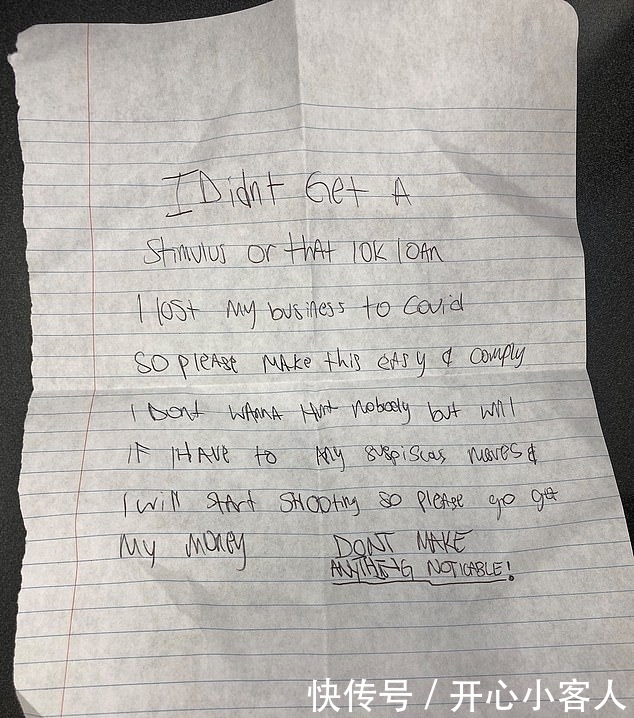 I Didnt Get A
Stimulus or that 10K loan
I lost My business to Covid
SO please make this easy & comply
I Dont wanna Hurt nobody but will
IF I HAVE to Any suspiscas moves &
I will start SHOOting so please go get
My Money DONT MAKE
ANYTHING NOTICABLE!
快传号 / 开心小客人